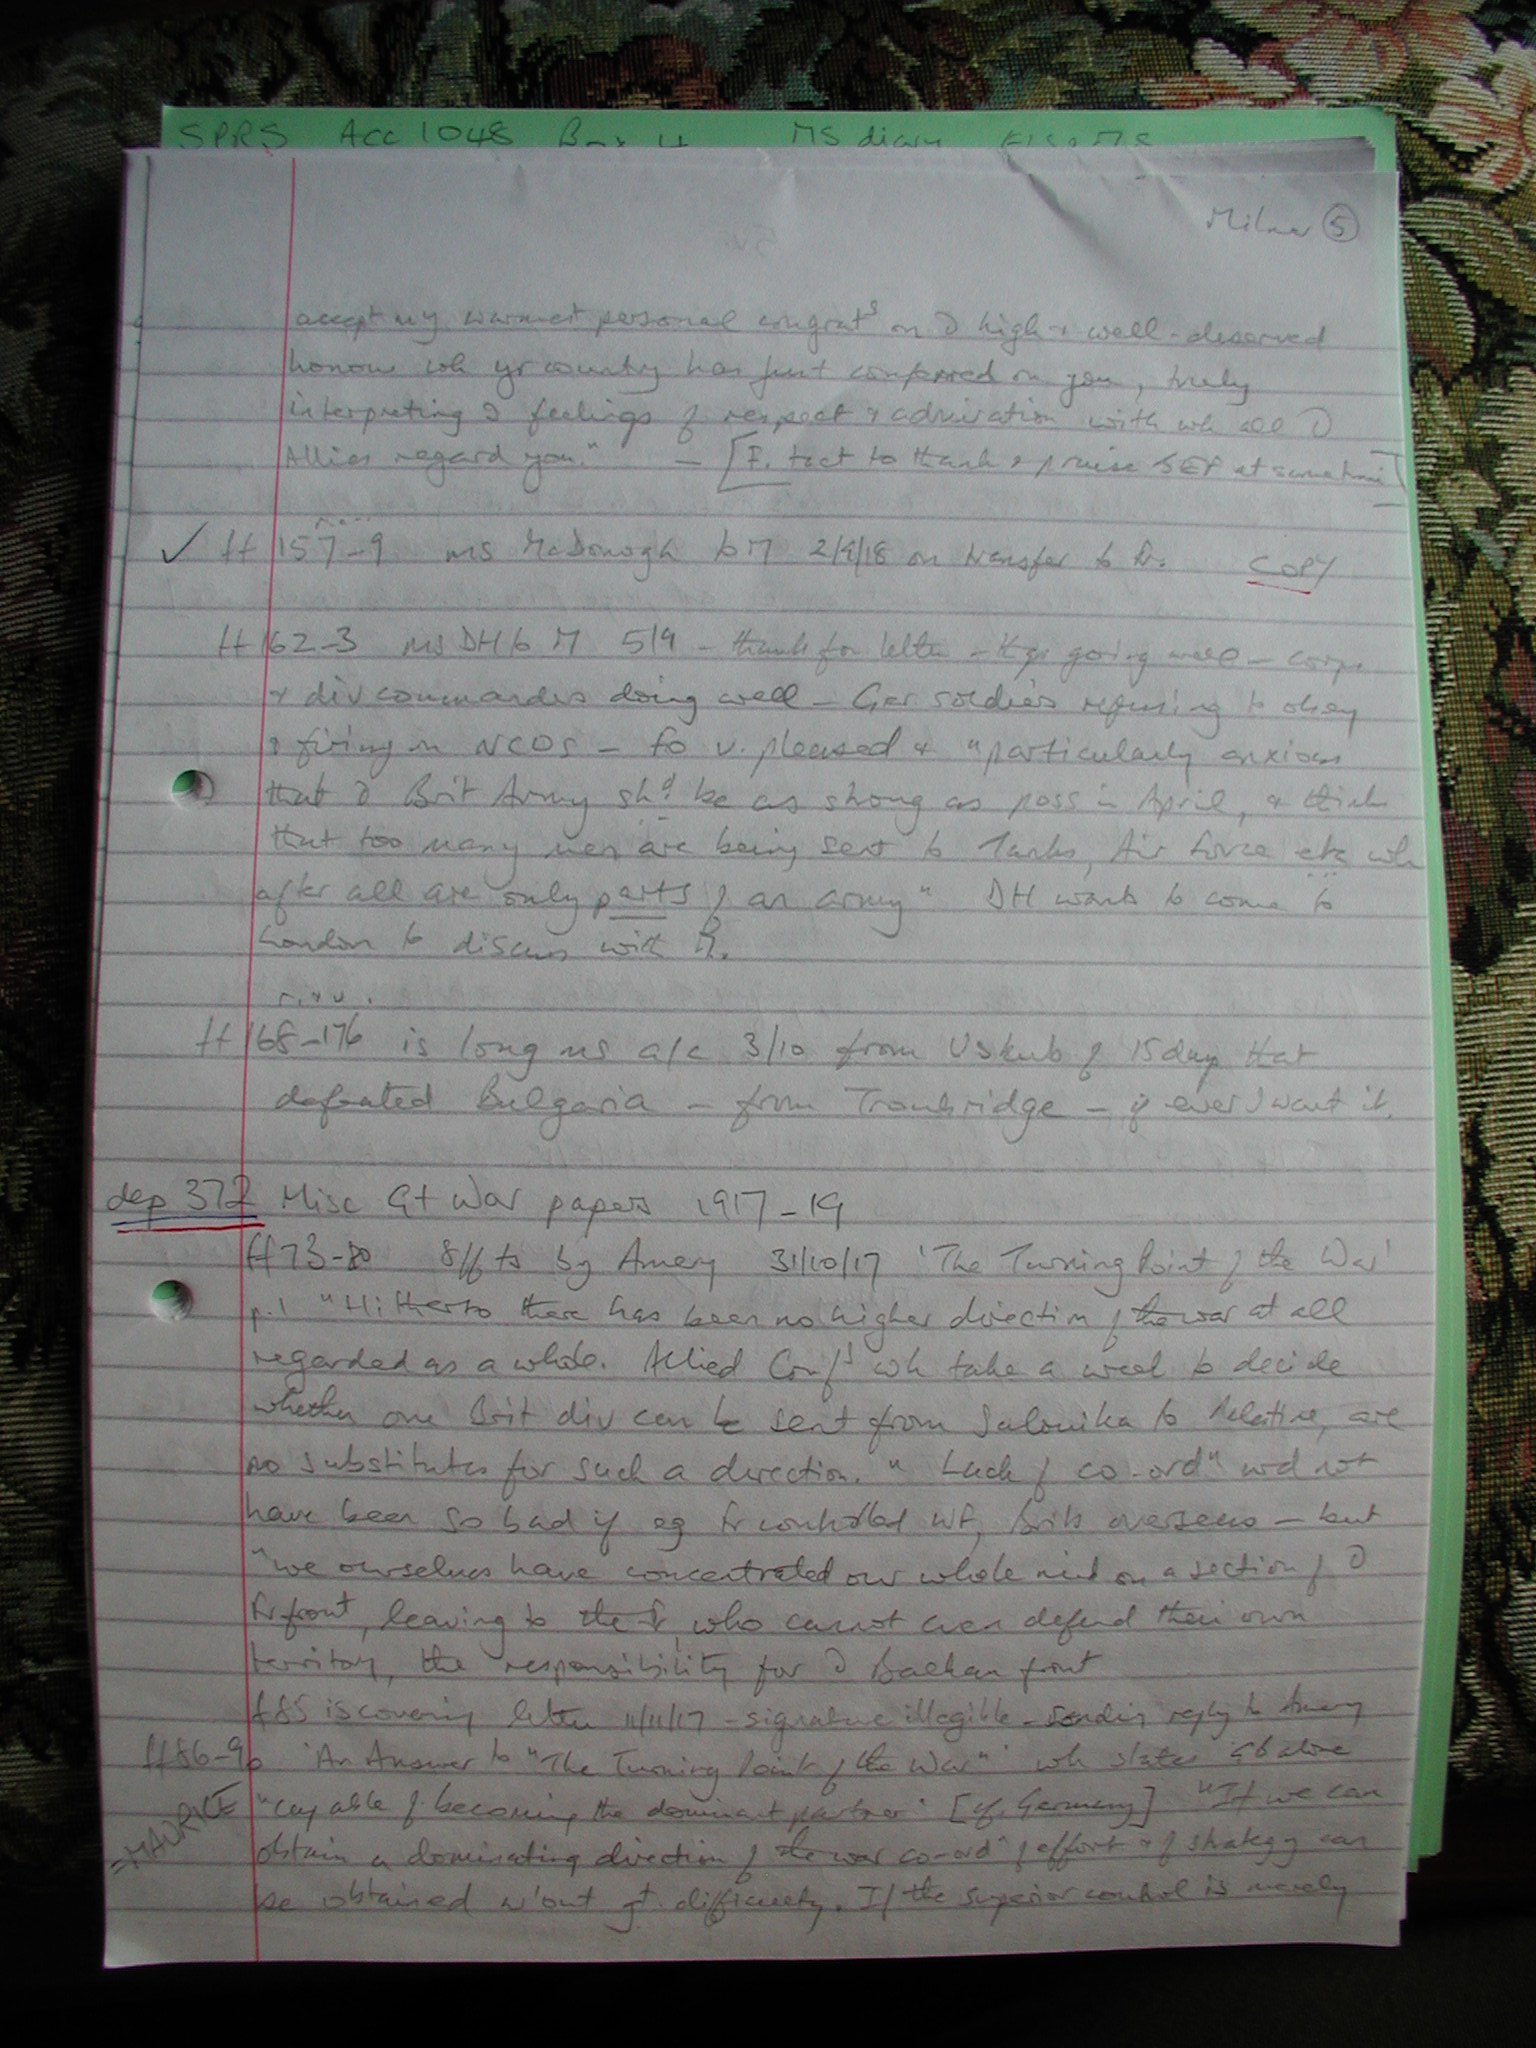 SPRS Acc 1048 Box 4 MS diary
Milner 5
accept my warmest personal congrats on ∂ high & well-deserved
honour wh yr country has just conferred on you, truly
interpreting ∂ feelings of respect & admiration with wh all ∂
Allies regard you." — [F. tact to thank & praise BEF at same time]
✓ ff 157-9 ms McDonogh to M 2/9/18 on transfer to Fr. COPY
ff 162-3 ms DH to M 5/9 - thanks for letter - things going well - corps
& div commanders doing well - Ger soldiers refusing to obey
& firing on NCOs - Fo v. pleased & "particularly anxious
that ∂ Brit Army shd be as strong as poss in April, & think
that too many men are being sent to Tanks, Air Force etc wh
after all are only parts of an army" DH wants to come to
London to discuss with M.
ff 168-176 is long ms a/c 3/10 from Uskub of 15 days that
defeated Bulgaria - from Troubridge - if ever I want it.
dep 372 Misc Gt War papers 1917-19
ff 73-80 8ff ts by Amery 31/10/17 'The Turning Point of the War'
p.1 "Hitherto there has been no higher direction of the war at all
regarded as a whole. Allied Confs wh take a week to decide
whether one Brit div can be sent from Salonika to Palestine, are
no substitutes for such a direction." Lack of co-ordn wd not
have been so bad if eg Fr controlled WF, Brits overseas - but
"we ourselves have concentrated our whole mind on a section of ∂
Fr front, leaving to the Fr, who cannot even defend their own
territory, the responsibility for ∂ Balkan front
f 85 is covering letter 11/11/17 - signature illegible - sending reply to Amery
ff 86-90 'An Answer to "The Turning Point of the War"' wh states GB alone
= MAURICE
"capable of becoming the dominant partner" [cf. Germany] "If we can
obtain a dominating direction of the war co-ordn of effort & of strategy can
be obtained w'out gt. difficulty. If the superior control is merely